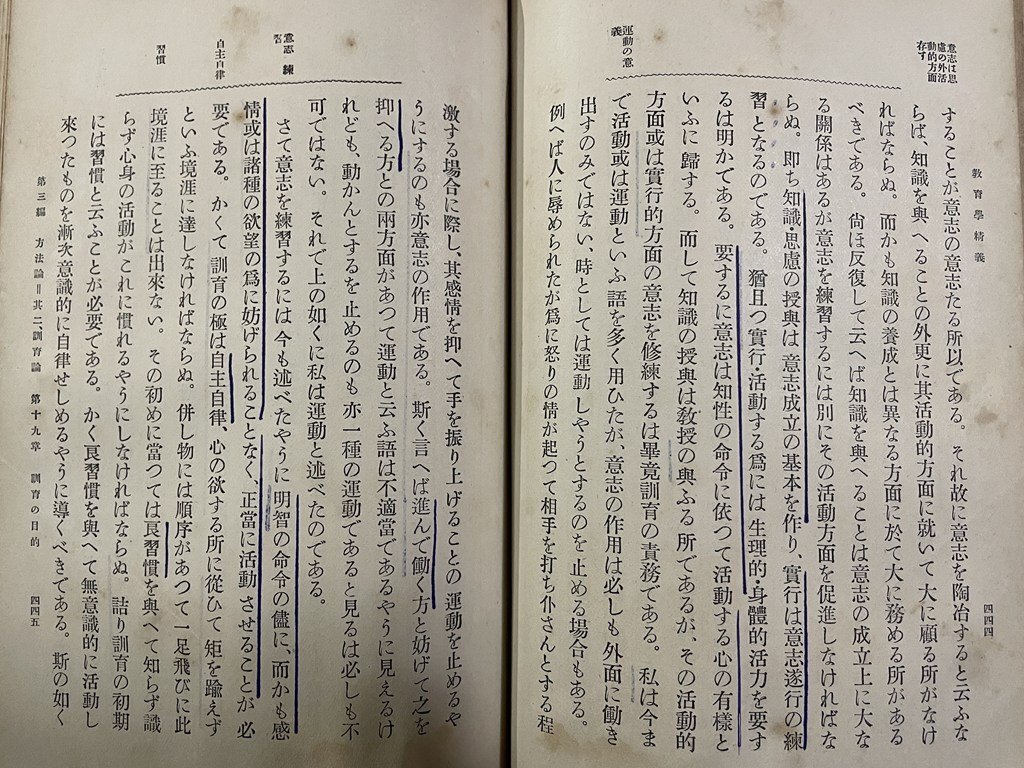 教育學精義
四四四
意志は思
慮の外活
動的方面
存す
運動の意
義
することが意志の意志たる所以である。それ故に意志を陶冶すると云ふな
らば、知識を與へることの外更に其活動的方面に就いて大に顧る所がなけ
ればならぬ。而かも知識の養成とは異なる方面に於て大に務める所がある
べきである。尙ほ反復して云へば知識を與へることは意志の成立上に大な
る關係はあるが意志を練習するには別にその活動方面を促進しなければな
らぬ。即ち知識・思慮の授與は意志成立の基本を作り、實行は意志遂行の練
習となるのである。猶且つ實行・活動する爲には生理的・身體的活力を要す
るは明かである。要するに意志は知性の命令に依つて活動する心の有樣と
いふに歸する。而して知識の授與は敎授の與ふる所であるが、その活動的
方面或は實行的方面の意志を修練するは畢竟訓育の責務である。私は今ま
で活動或は運動といふ語を多く用ひたが、意志の作用は必しも外面に働き
出すのみではない、時としては運動しやうとするのを止める場合もある。
例へば人に辱められたが爲に怒りの情が起つて相手を打ち仆さんとする程
意志練
習
自主自律
習慣
激する場合に際し、其感情を抑へて手を振り上げることの運動を止めるや
うにするのも亦意志の作用である。斯く言へば進んで働く方と妨げて之を
抑へる方との兩方面があつて運動と云ふ語は不適當であるやうに見えるけ
れども、動かんとするを止めるのも亦一種の運動であると見るは必しも不
可ではない。それで上の如くに私は運動と述べたのである。
さて意志を練習するには今も述べたやうに明智の命令の儘に、而かも感
情或は諸種の欲望の爲に妨げられることなく、正當に活動させることが必
要である。かくて訓育の極は自主自律、心の欲する所に從ひて矩を踰えず
といふ境涯に達しなければならぬ。併し物には順序があつて一足飛びに此
境涯に至ることは出來ない。その初めに當つては良習慣を與へて知らず識
らず心身の活動がこれに慣れるやうにしなければならぬ。詰り訓育の初期
には習慣と云ふことが必要である。かく良習慣を與へて無意識的に活動し
來つたものを漸次意識的に自律せしめるやうに導くべきである。斯の如く
第三編 方法論=其二、訓育論 第十九章 訓育の目的
四四五